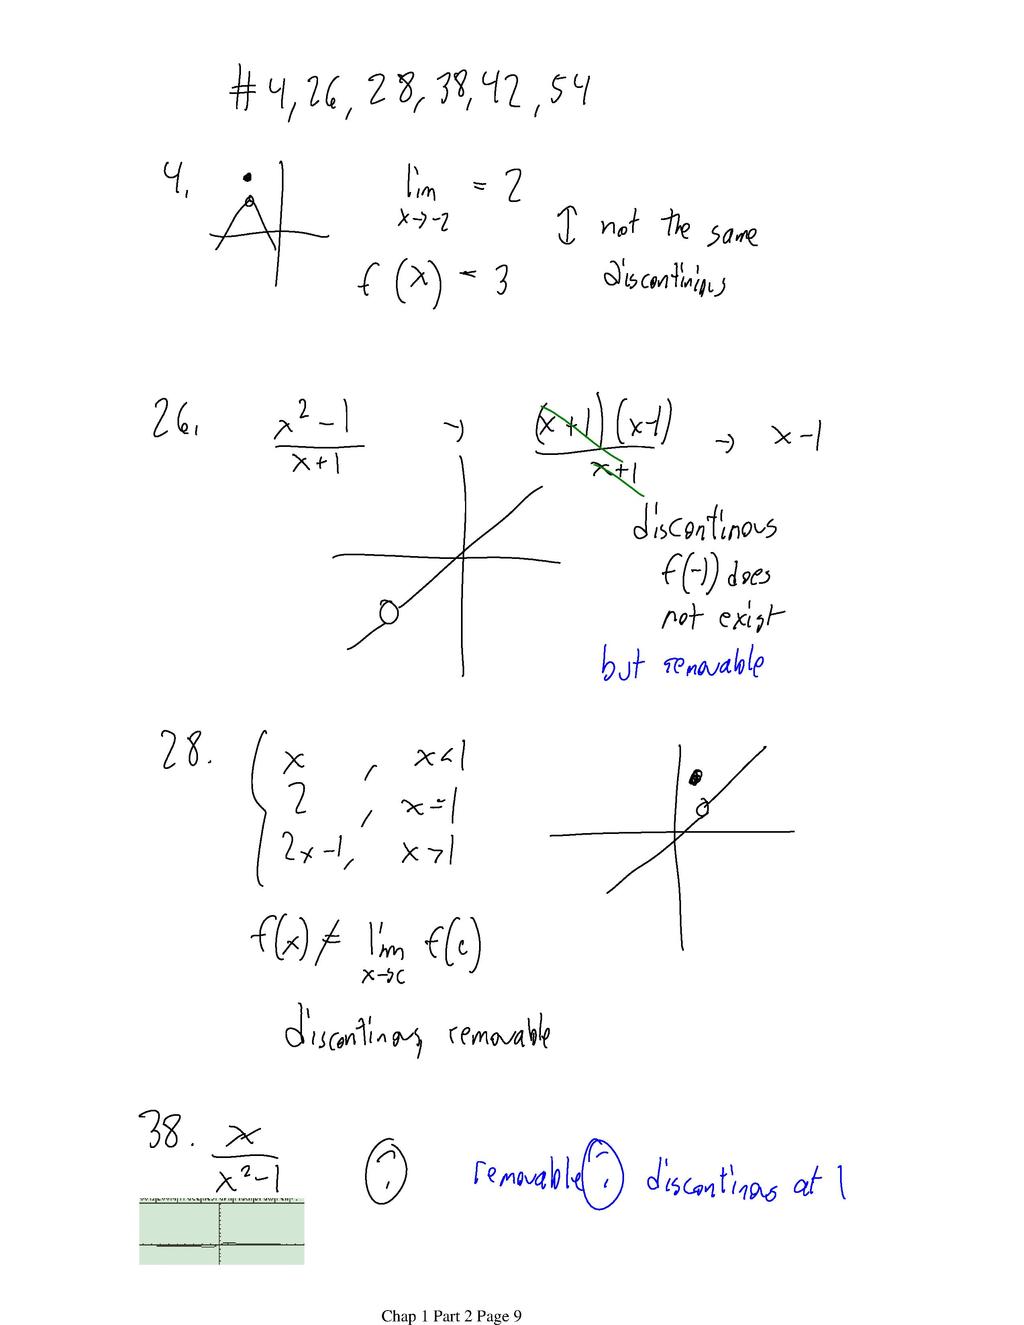 # 4, 26, 28, 38, 42, 54
4.
lim = 2
x→-2
f(x) = 3
↕ not the same
discontinious
26. x²-1 / x+1 → (x+1)(x-1) / x+1 → x-1
discontinous
f(-1) does
not exist
but removable
28. { x , x<1
2 , x=1
2x-1, x>1
f(x) ≠ lim f(c)
x→c
discontinous, removable
38. x / x²-1 ? removable ? discontinous at 1
Chap 1 Part 2 Page 9